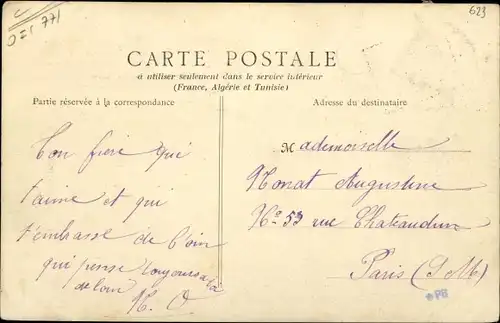 623
CARTE POSTALE
a utiliser seulement dans le service intérieur
(France, Algérie et Tunisie)
Partie réservée à la correspondance
Adresse du destinataire
Ton frère qui
t'aime et qui
t'embrasse de loin
qui pense toujours
de loin
Mademoiselle
Monat Augustine
No 53 rue Chateaudun
Paris (S.M.)
PB